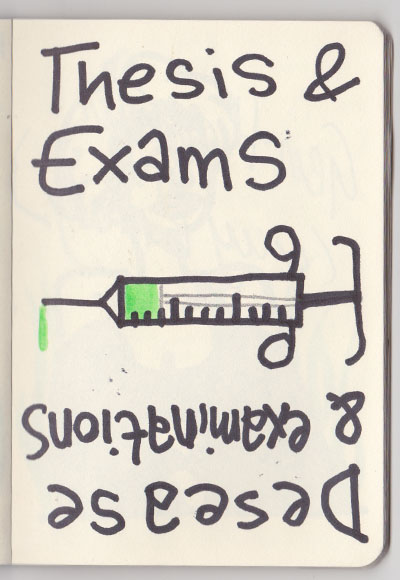 Thesis &
Exams
Desease
& examinations